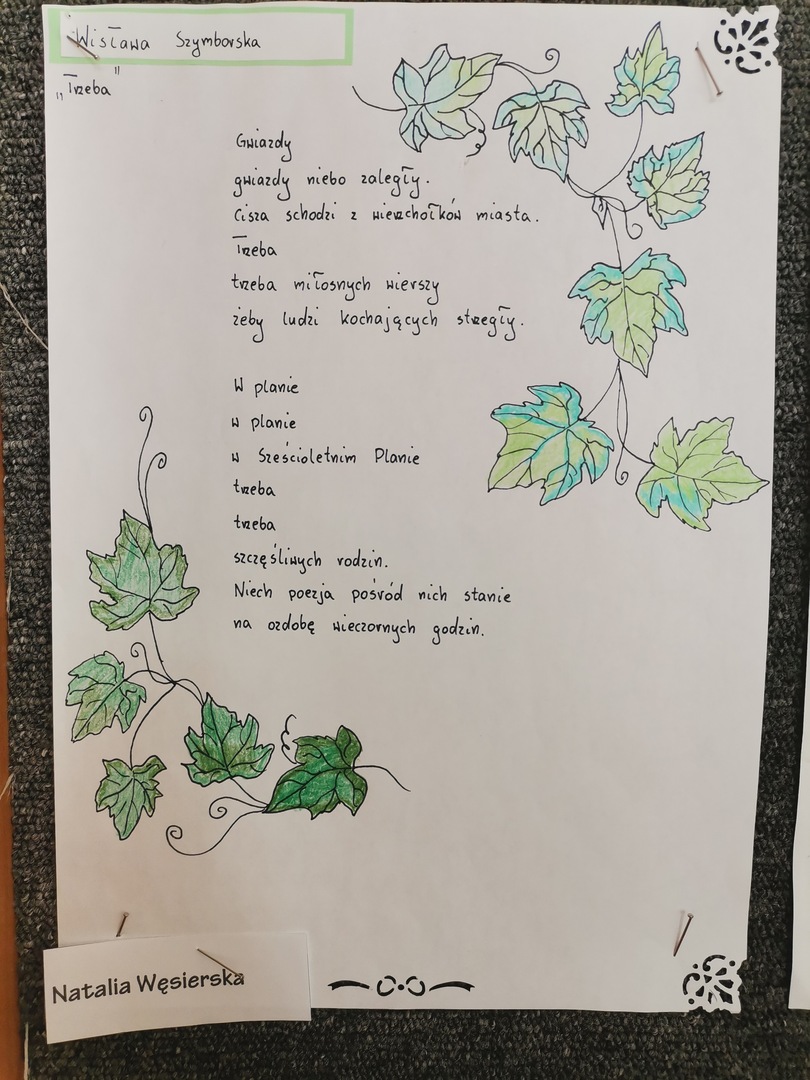 Wisława Szymborska
„Trzeba"
Gwiazdy
gwiazdy niebo zaległy.
Cisza schodzi z wierzchołków miasta.
Trzeba
trzeba miłosnych wierszy
żeby ludzi kochających strzegły.
W planie
w planie
w Sześcioletnim Planie
trzeba
trzeba
szczęśliwych rodzin.
Niech poezja pośród nich stanie
na ozdobę wieczornych godzin.
Natalia Węsierska